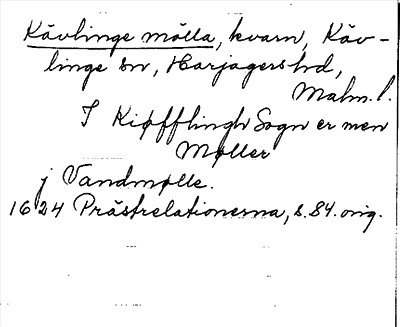 Kävlinge mölla, kvarn, Käv-
linge sn, Harjagers hd,
Malm. l.
I Kiøfflingh Sogn er men
Møller
j Vandmølle.
1624 Prästrelationerna, s. 84. orig.